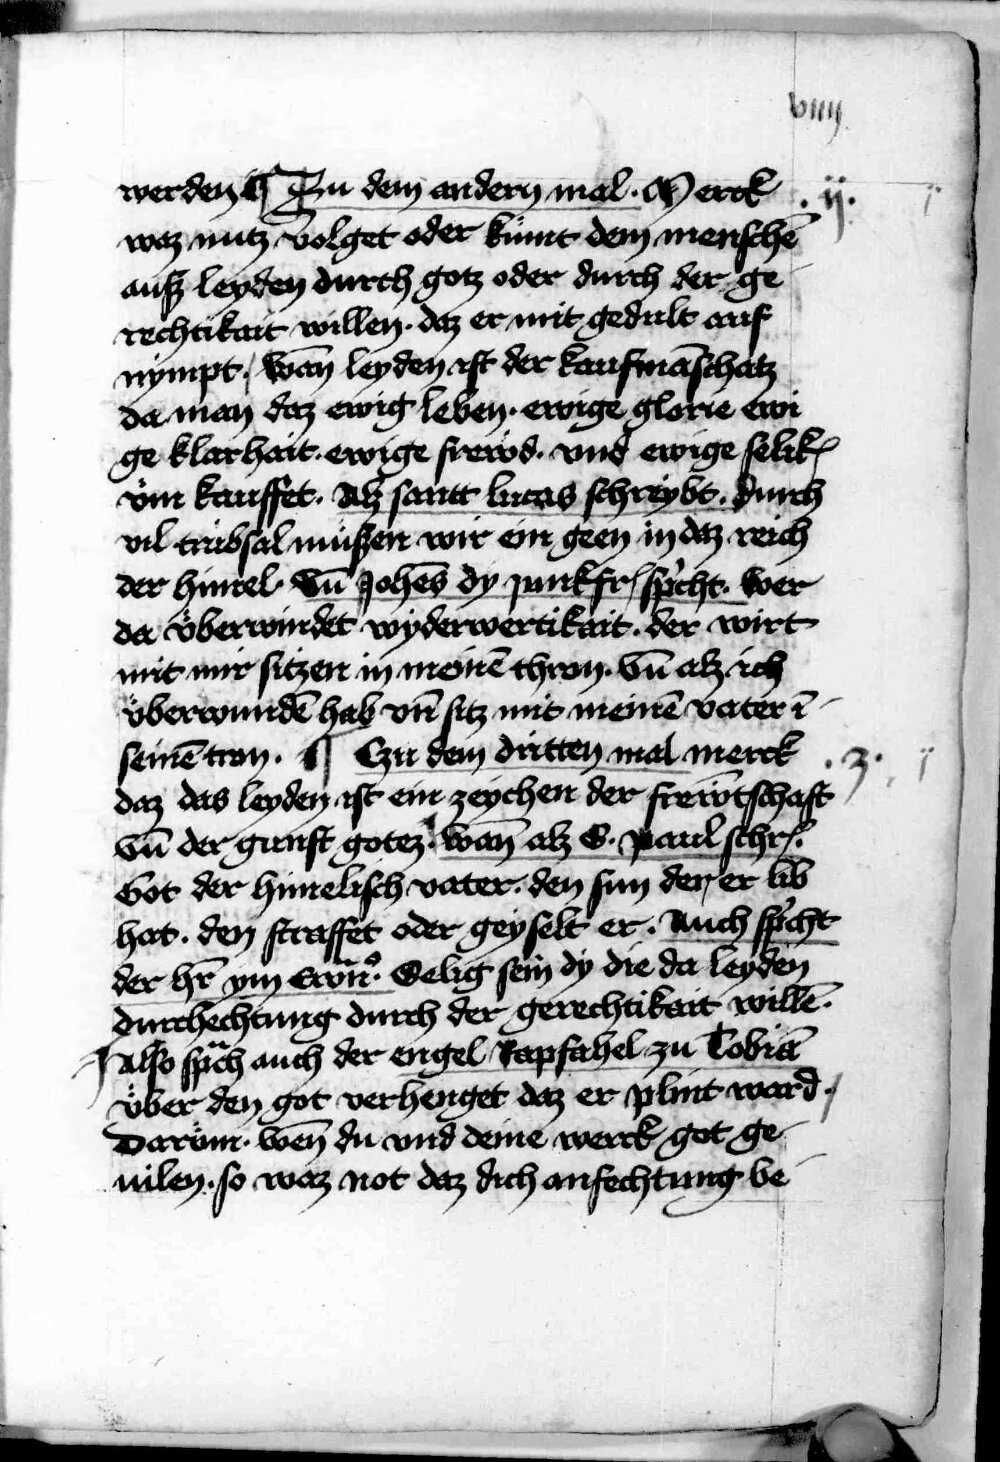 viiij
werden ¶ Zu dem andern mal · Merck · ij ·
waz nutz volget oder kümt dem menschē
auß leyden durch gotz oder durch der ge
rechtikait willen · daz er mit gedult auf
nympt / wan̄ leyden ist der kaufmāschatz
da man daz ewig leben · ewige glorie ewi
ge klarhait · ewige frewd · vnd ewige selik
vm̈ kauffet · Alz santt lucas schreybt · durch
vil trübsal müßen wir ein geen in daz reich
der himel · Vn̄ Johēs dy junkfr spͥcht · Wer
da überwindet wyderwertikait · der wirt
mit mir sitzen in meinē thron · Vn̄ alz ich
überwundē hab vn̄ sitz mit meinē vater ī
seinē tron · ¶ Czu dem dritten mal merck · 3 ·
daz das leyden ist ein zeychen der frewntschaft
Vn̄ der gunst gotez · wan̄ alz S · Paul schr ·
Got der himelisch vater · den sun den er lib
hat · den straffet oder geyselt er · Auch spͥcht
der hr̄ ym Ewn̄ · Selig sein dy die da leyden
durchechtung durch der gerechtikait willē ·
Also sprach auch der engel Rapfahel zu Tobiā
über den got verhenget daz er plint ward ·
Darüm · wen̄ du vnd deine werck got ge
uilen · so waz not daz dich anfechtung be